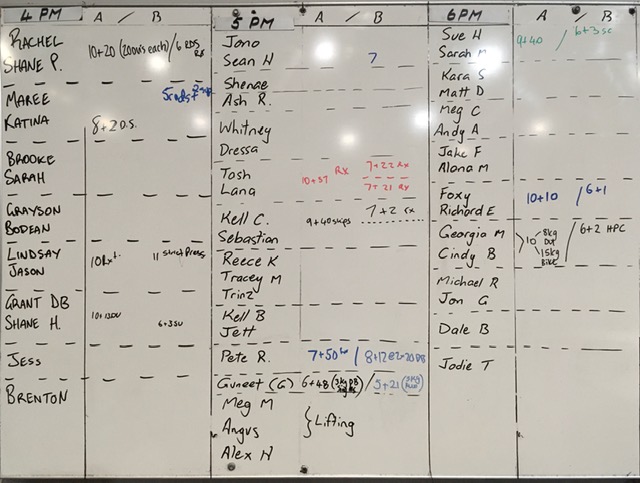 4 PM A / B
RACHEL
SHANE P. 10+20 (200m's each) / 6 RDS RX
MAREE
KATINA 8+2 D.S.
BROOKE
SARAH
GRAYSON
BODEAN
LINDSAY
JASON 10Rx+. 11 strict Press
GRANT DB
SHANE H. 6+3SU
JESS
BRENTON
5 PM A / B
Jono
Sean H 7
Shenae
Ash R.
Whitney
Dressa
Tosh 7+22 Rx
10+37 RX
Lana 7+21 Rx
Kell C. 9+40skips 7+2 rx
Sebastian
Reece K
Tracey M
Trinz
Kell B
Jett
Pete R. 7+50 / 8+12
Guneet (G) 6+48 / 5+21
Meg M
Angus } Lifting
Alex H
6PM A / B
Sue H 9+40 / 6+3 sc
Sarah M
Kara S
Matt D
Meg C
Andy A
Jake F
Alana M
Foxy 10+10 / 6+1
Richard E
Georgia M 10 8kg / 6+2 HPC
Cindy B 15kg Bike
Michael R
Jon G
Dale B
Jodie T